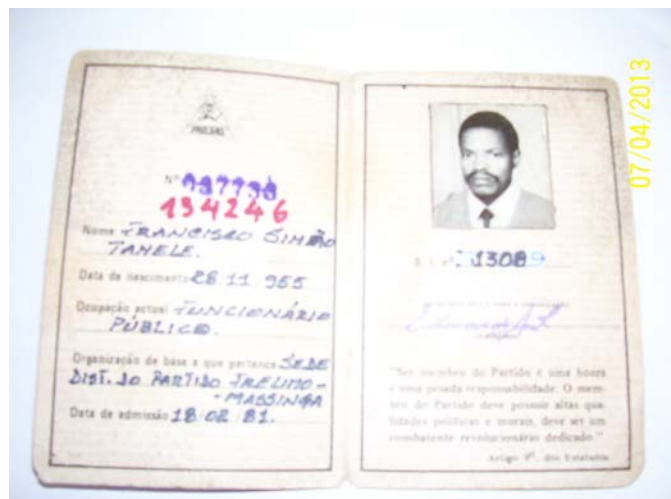 FRELIMO
Nº
134246
Nome FRANCISCO SIMEÃO
TAMELE.
Data de nascimento 28 11 955
Ocupação actual FUNCIONÁRIO
PÚBLICO.
Organização de base a que pertence SEDE
DIST. DO PARTIDO FRELIMO -
- MASSINGA
Data de admissão 18/02/81.
13089
"Ser membro do Partido é uma honra
e uma pesada responsabilidade. O mem-
bro do Partido deve possuir altas qua-
lidades políticas e morais, deve ser um
combatente revolucionário dedicado"
Artigo 9º. dos Estatutos
07/04/2013